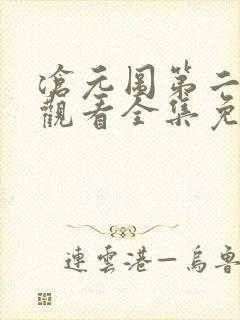 滄元圖第二
觀看全集免
連雲港—烏魯